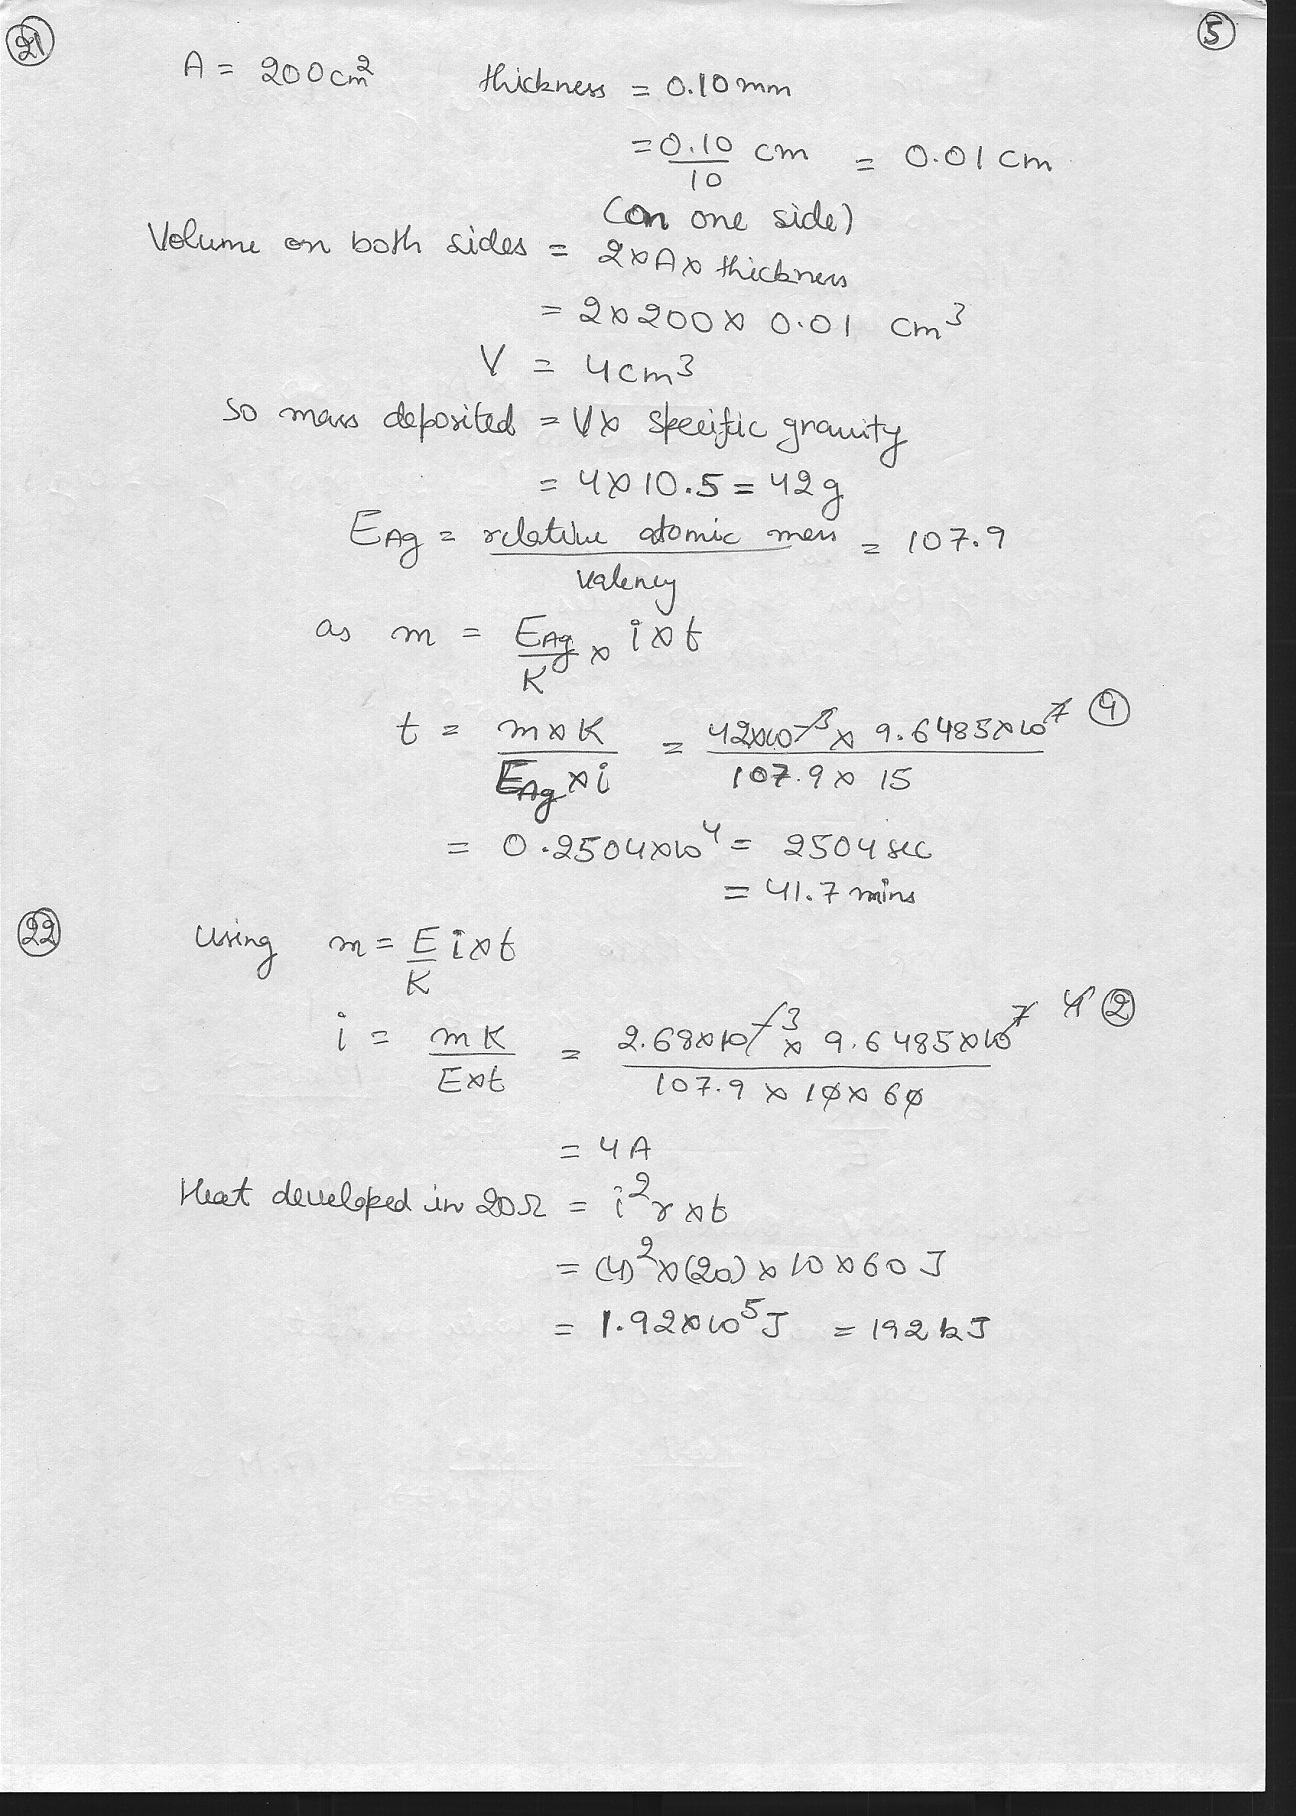 21
5
A = 200cm² thickness = 0.10mm
= 0.10/10 cm = 0.01cm
(on one side)
Volume on both sides = 2×A× thickness
= 2×200× 0.01 cm³
V = 4cm³
so mass deposited = V× specific gravity
= 4×10.5 = 42g
E_Ag = relative atomic mass / valency = 107.9
as m = E_Ag/K × i×t
t = m×K / E_Ag×i = 42×10⁻³ × 9.6485×10⁷ ④ / 107.9× 15
= 0.2504×10⁴ = 2504 sec
= 41.7 mins
22
Using m = E/K i×t
i = mK / E×t = 2.68×10⁻³ × 9.6485×10⁷ 4 ② / 107.9 × 10× 60
= 4A
Heat developed in 20Ω = i²r×t
= (4)²×(20)×10×60 J
= 1.92×10⁵J = 192kJ